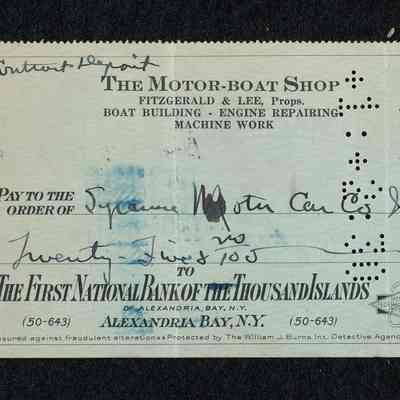 Contract Deposit
THE MOTOR-BOAT SHOP
FITZGERALD & LEE, Props.
BOAT BUILDING - ENGINE REPAIRING
MACHINE WORK
PAY TO THE
ORDER OF Syracuse Motor Car Co
Twenty-five & no/100
TO
THE FIRST NATIONAL BANK OF THE THOUSAND ISLANDS
OF ALEXANDRIA BAY, N.Y.
(50-643) ALEXANDRIA BAY, N.Y. (50-643)
nsured against fraudulent alterations Protected by The William J. Burns Int. Detective Agen